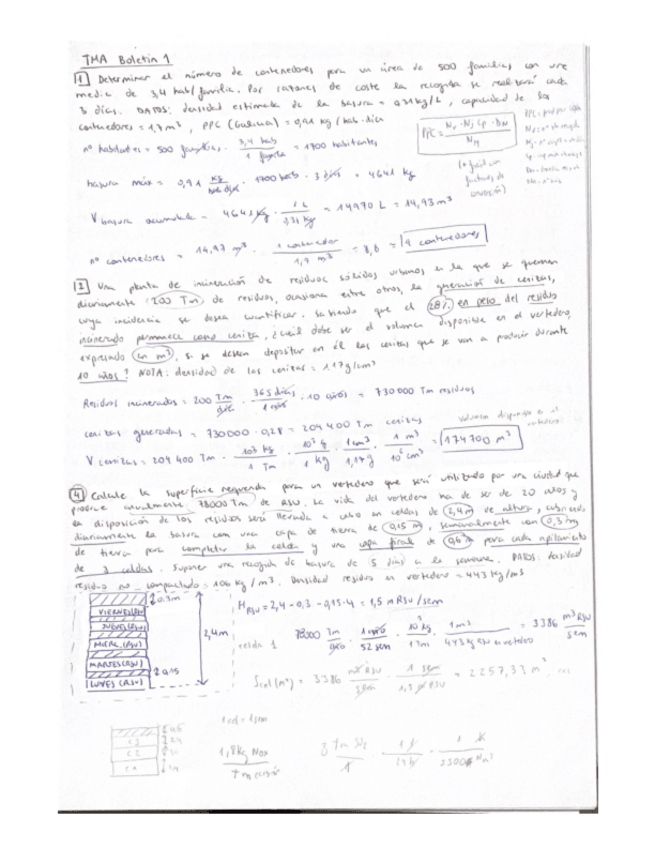 TMA Boletín 1
1 Determinar el número de contenedores para un área de 500 familias con una
media de 3,4 hab/familia. Por razones de coste la recogida se realizará cada
3 días. DATOS: densidad estimada de la basura = 0,31 kg/L, capacidad de los
contenedores = 1,7 m³, PPC (Galicia) = 0,91 kg/hab·día
nº habitantes = 500 familias · 3,4 hab / 1 familia = 1700 habitantes
basura máx = 0,91 kg / hab·día · 1700 hab · 3 días = 4641 kg
V basura acumulada = 4641 kg · 1 L / 0,31 kg = 14970 L = 14,93 m³
nº contenedores = 14,97 m³ · 1 contenedor / 1,7 m³ = 8,6 = 9 contenedores
2 Una planta de incineración de residuos sólidos urbanos en la que se queman
diariamente 200 Tm de residuos, ocasiona entre otros, la generación de cenizas,
cuya incidencia se desea cuantificar. Sabiendo que el 28% en peso del residuo
incinerado permanece como ceniza, ¿cuál debe ser el volumen disponible en el vertedero,
expresado en m³, si se desean depositar en él las cenizas que se van a producir durante
10 años? NOTA: densidad de las cenizas = 1,17 g/cm³
Residuos incinerados = 200 Tm / día · 365 días / 1 año · 10 años = 730000 Tm residuos
cenizas generadas = 730000 · 0,28 = 204400 Tm cenizas
V cenizas = 204400 Tm · 10³ kg / 1 Tm · 10³ g / 1 kg · 1 cm³ / 1,17 g · 1 m³ / 10⁶ cm³ = 174700 m³
4 Calcule la superficie requerida para un vertedero que será utilizado por una ciudad que
produce anualmente 78000 Tm de RSU. La vida del vertedero ha de ser de 20 años y
la disposición de los residuos será llevada a cabo en celdas de 2,4 m de altura, cubriendo
diariamente la basura con una capa de tierra de 0,15 m, semanalmente con 0,3 m
de tierra para completar la celda y una capa final de 0,6 m para cada apilamiento
de 3 celdas. Suponer una recogida de basura de 5 días a la semana. DATOS: densidad
residuo no compactado = 106 kg/m³. Densidad residuo en vertedero = 443 kg/m³
0.3m
VIERNES (RSU)
JUEVES (RSU)
MIERC. (RSU)
MARTES (RSU)
LUNES (RSU)
2,4m
0.15
H RSU = 2,4 - 0,3 - 0,15·4 = 1,5 m RSU/sem
celda 1 78000 Tm / año · 1 año / 52 sem · 10³ kg / 1 Tm · 1 m³ / 443 kg RSU en vertedero = 3386 m³ RSU / sem
S cel (m²) = 3386 m³ RSU / sem · 1 sem / 1,5 m RSU = 2257,33 m²
1 cel = 1 sem
C3
C2
1,8 kg NOx